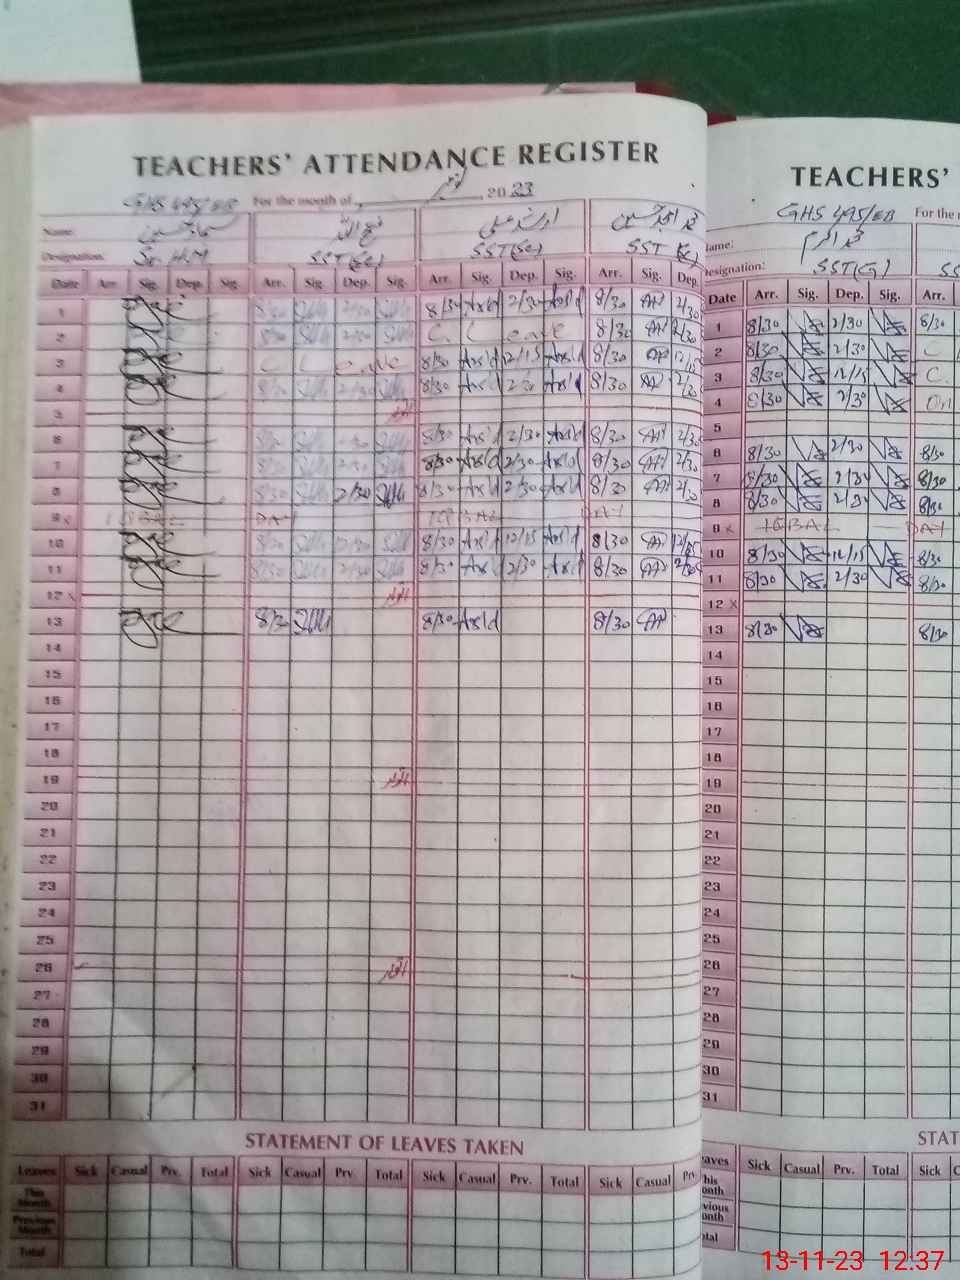 TEACHERS' ATTENDANCE REGISTER
GHS 495/EB For the month of نومبر 2023
Name: فتح اللہ ارشد علی
Designation: Sr. H.M SST(Sc) SST(Sc) SST(Sc)
Date Arr. Sig. Dep. Sig. Arr. Sig. Dep. Sig. Arr. Sig. Dep. Sig. Arr. Sig. Dep.
1 8/30 2/30 8/30 Arsld 2/30 Arsld 8/30 2/30
2 8/30 2/30 C. Leave 8/30 2/30
3 C Leave 8/30 Arsld 12/15 Arsld 8/30 12/15
4 8/30 2/30 8/30 Arsld 2/30 Arsld 8/30 2/30
5 اتوار
6 8/30 2/30 8/30 Arsld 2/30 Arsld 8/30 2/30
7 8/30 2/30 8/30 Arsld 2/30 Arsld 8/30 2/30
8 8/30 2/30 8/30 Arsld 2/30 Arsld 8/30 2/30
9 x IQBAL DAY IQBAL DAY
10 8/30 12/15 8/30 Arsld 12/15 Arsld 8/30 12/15
11 8/30 2/30 8/30 Arsld 2/30 Arsld 8/30 2/30
12 x اتوار
13 8/30 8/30 Arsld 8/30
14
15
16
17
18
19 اتوار
20
21
22
23
24
25
26 اتوار
27
28
29
30
31
STATEMENT OF LEAVES TAKEN
Leaves Sick Casual Prv. Total Sick Casual Prv. Total Sick Casual Prv. Total Sick Casual Prv.
This Month
Previous Month
Total
TEACHERS'
GHS 495/EB For the
Name: محمد اکرم
Designation: SST(G) SS
Date Arr. Sig. Dep. Sig. Arr.
1 8/30 2/30 8/30
2 8/30 2/30 C
3 8/30 12/15 C.
4 8/30 2/30 On
5
6 8/30 2/30 8/30
7 8/30 2/30 8/30
8 8/30 2/30 8/30
9 x IQBAL DAY
10 8/30 12/15 8/30
11 8/30 2/30 8/30
12 x
13 8/30 8/30
14
15
16
17
18
19
20
21
22
23
24
25
26
27
28
29
30
31
STAT
eaves Sick Casual Prv. Total Sick C
his onth
vious onth
otal
13-11-23 12:37